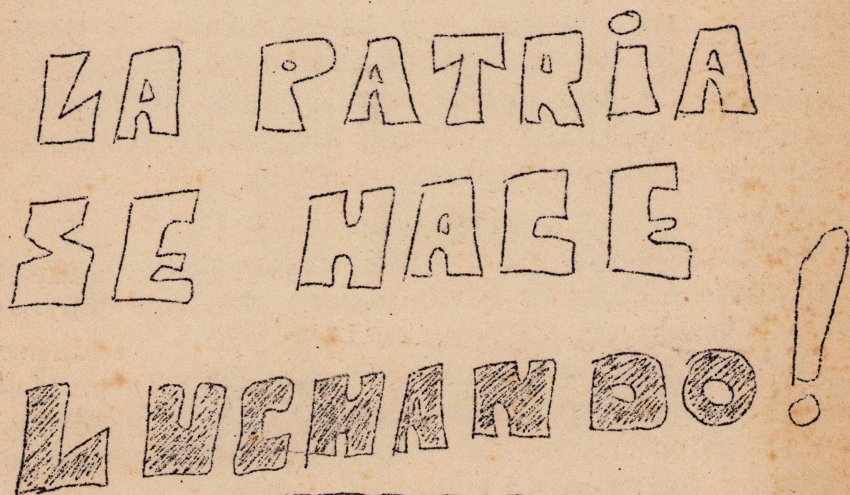 LA PATRiA
SE HACE
LUCHANDO!